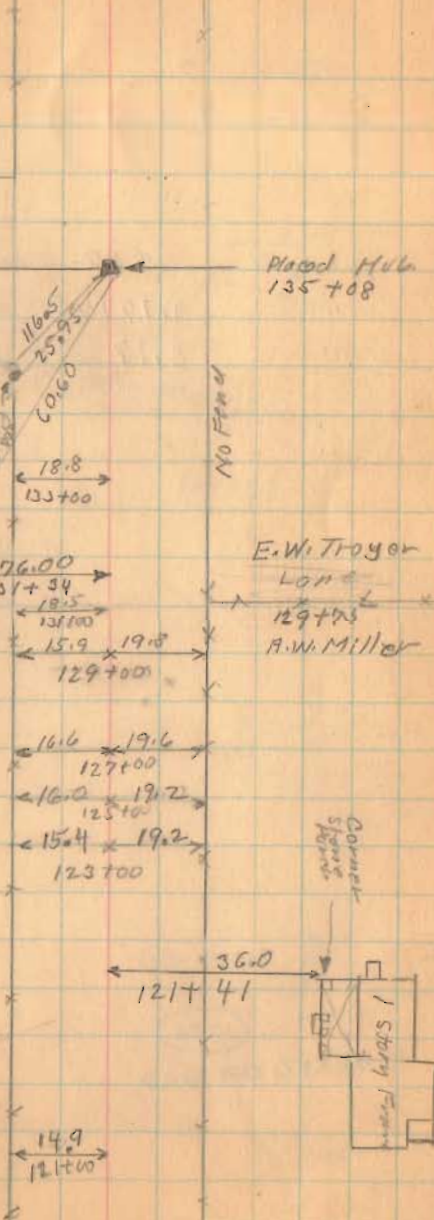 Placed Hub
135 +08
116.5
25.95
60.60
No Fence
18.8
133+00
76.00
31+34
E.W. Troyer
Lane
129+75
A.W. Miller
18.5
131+00
15.9 19.8
129+00
16.6 19.6
127+00
16.0 19.2
125+00
15.4 19.2
123+00
Corner
Stone
36.0
121+41
1 Story Frame
14.9
121+00